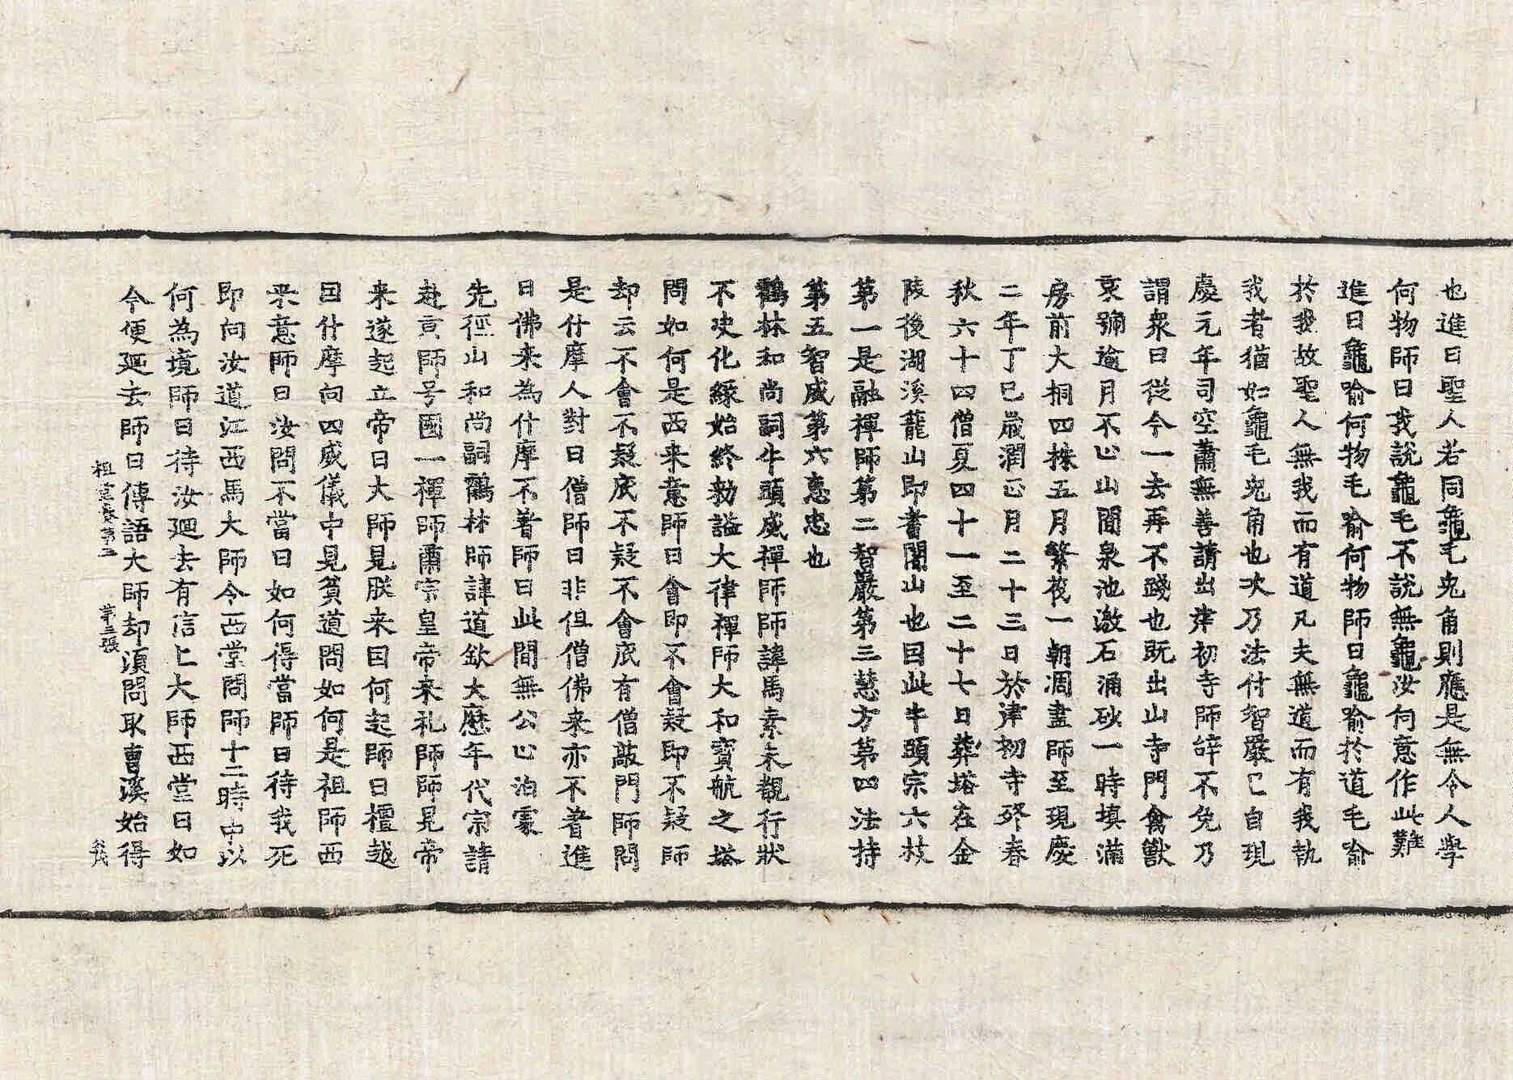 也進曰聖人若同龜毛兎角則應是無令人學
何物師曰我說龜毛不說無龜汝何意作此難
進曰龜喻何物毛喻何物師曰龜喻於道毛喻
於我故聖人無我而有道凡夫無道而有我執
我者猶如龜毛兎角也次乃法付智巖已自現
慶元年司空蕭無善請出津初寺師辞不免乃
謂衆曰從今一去再不踐也既出山寺門禽獸
哀號逾月不止山間泉池激石涌砂一時填滿
房前大桐四株五月繁茂一朝凋盡師至現慶
二年丁巳歲潤正月二十三日於津初寺終春
秋六十四僧夏四十一至二十七日葬塔在金
陵後湖溪龍山即耆闍山也因此牛頭宗六枝
第一是融禪師第二智巖第三慧方第四法持
第五智威第六惠忠也
鶴林和尚詞牛頭威禪師師諱馬素未覩行狀
不决化緣始終勑謚大律禪師大和寶航之塔
問如何是西来意師曰會即不會疑即不疑師
却云不會不疑底不疑不會底有僧敲門師問
是什摩人對曰僧師曰非但僧佛来亦不着進
曰佛来為什摩不着師曰此間無公止泊處
先徑山和尚詞鶴林師諱道欽大曆年代宗請
赴京師号國一禪師肅宗皇帝来礼師師見帝
来遂起立帝曰大師見朕来因何起師曰檀越
因什摩向四威儀中見貧道問如何是祖師西
来意師曰汝問不當曰如何得當師曰待我死
即向汝道江西馬大師令西堂問師十二時中以
何為境師曰待汝廻去有信上大師西堂曰如
今便廻去師曰傳語大師却須問取曹溪始得
祖堂集第三 第三張